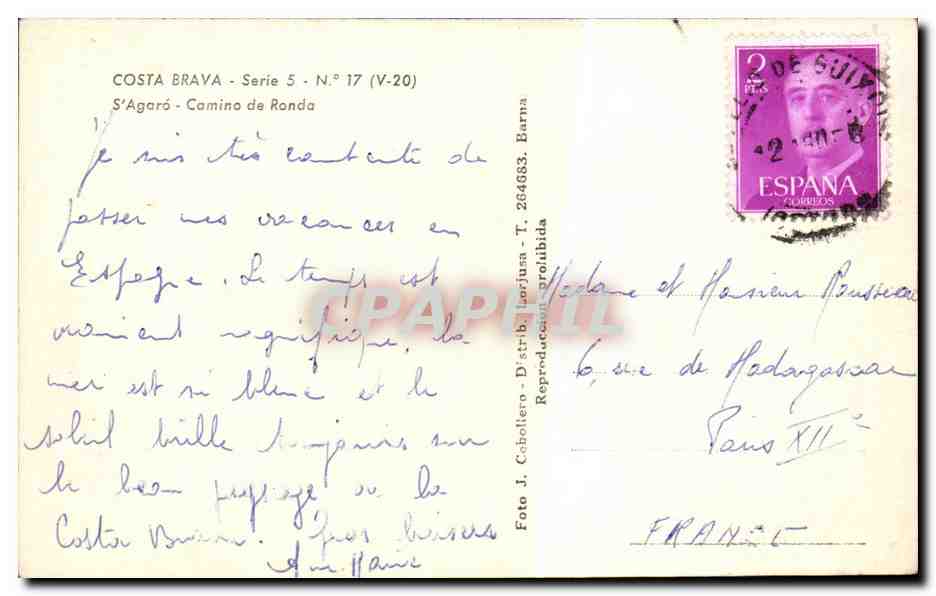 COSTA BRAVA - Serie 5 - N.º 17 (V-20)
S'Agaró - Camino de Ronda
Je suis très contente de
passer mes vacances en
Espagne. Le temps est
vraiment magnifique, la
mer est si bleue et le
soleil brille toujours sur
le beau paysage de la
Costa Brava. Gros baisers
Anne Marie
Foto J. Cebollero - Distrib. Lorjusa - T. 264683. Barna
Reproducción prohibida
2
PTAS
ESPAÑA
CORREOS
DE GUIXOLS
Madame et Monsieur Rousseau
6, rue de Madagascar
Paris XIIe
FRANCE
CPAPHIL